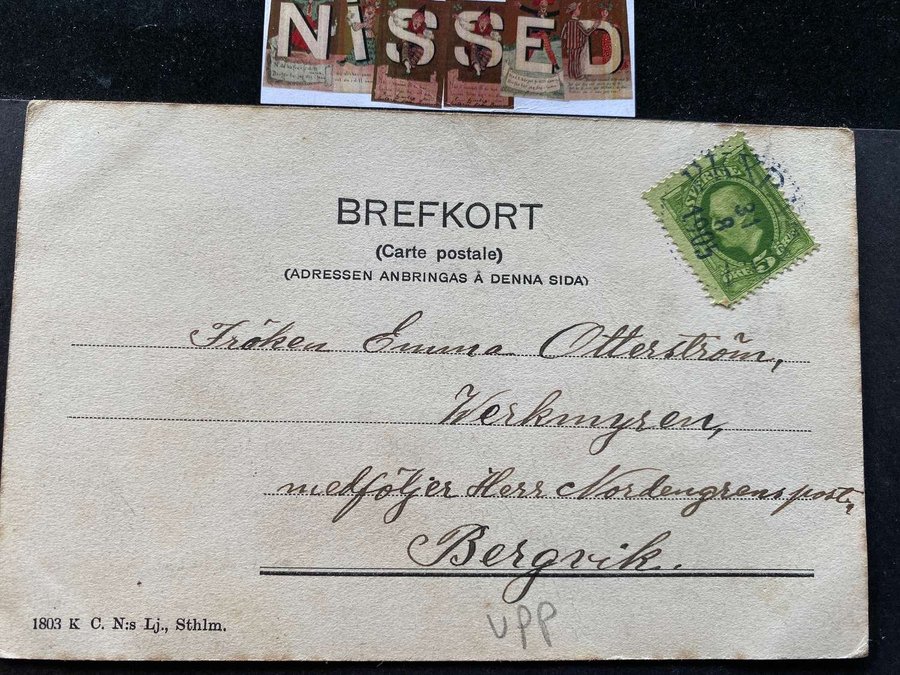 NISSED
BREFKORT
(Carte postale)
(ADRESSEN ANBRINGAS Å DENNA SIDA)
SVERIGE
31
8
1901
5
Fröken Emma Otterström,
Werkmyren,
medföljer Herr Nordengrens post,
Bergvik.
1803 K C. N:s Lj., Sthlm.
UPP